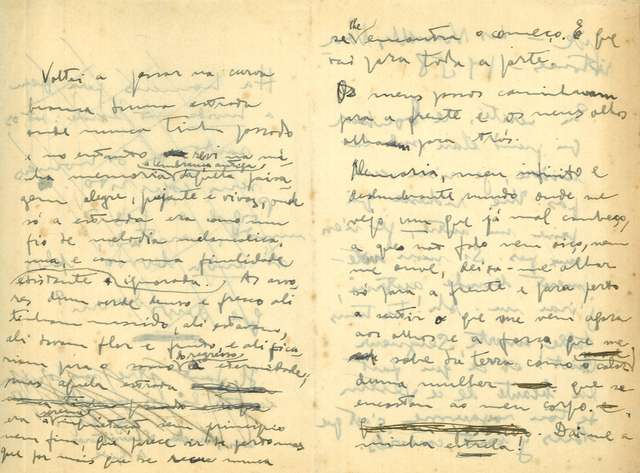 Voltei a passar na curva
branca duma estrada
onde nunca tinha passado
e no entanto revi na mi-
a lembrança antiga
nha memoria daquela paisa
gem alegre, pujante e vivaz, onde
só a estrada era como um
fio de melodia melancolica,
uma, e com uma finalidade
existente e ignorada. As arvo
res dum verde denso e fresco ali
tinham nascido, ali estavam,
ali davam flor e fruto, e ali fica
o regresso
riam pra o sono a eternidade,
mas aquela estrada
era sem principio
nem fim, que parece ir se perdermos
que por mais que se nunca
the
se encontra o começo. E que
vai para toda a parte.
Os meus passos caminhavam
pra a frente e os meus olhos
olhavam pra trás.
Memoria, meu infinito e
deslumbrante mundo onde me
vejo um que já mal conheço,
a quem não falo nem oiço, nem
me ouve, deixa-me olhar
só para a frente e para perto
a sentir o que me vem agora
aos olhos e a força que me
sobe da terra, como o calor
duma mulher que se
encostou ao meu corpo.
Dai-me a
minha estrela!